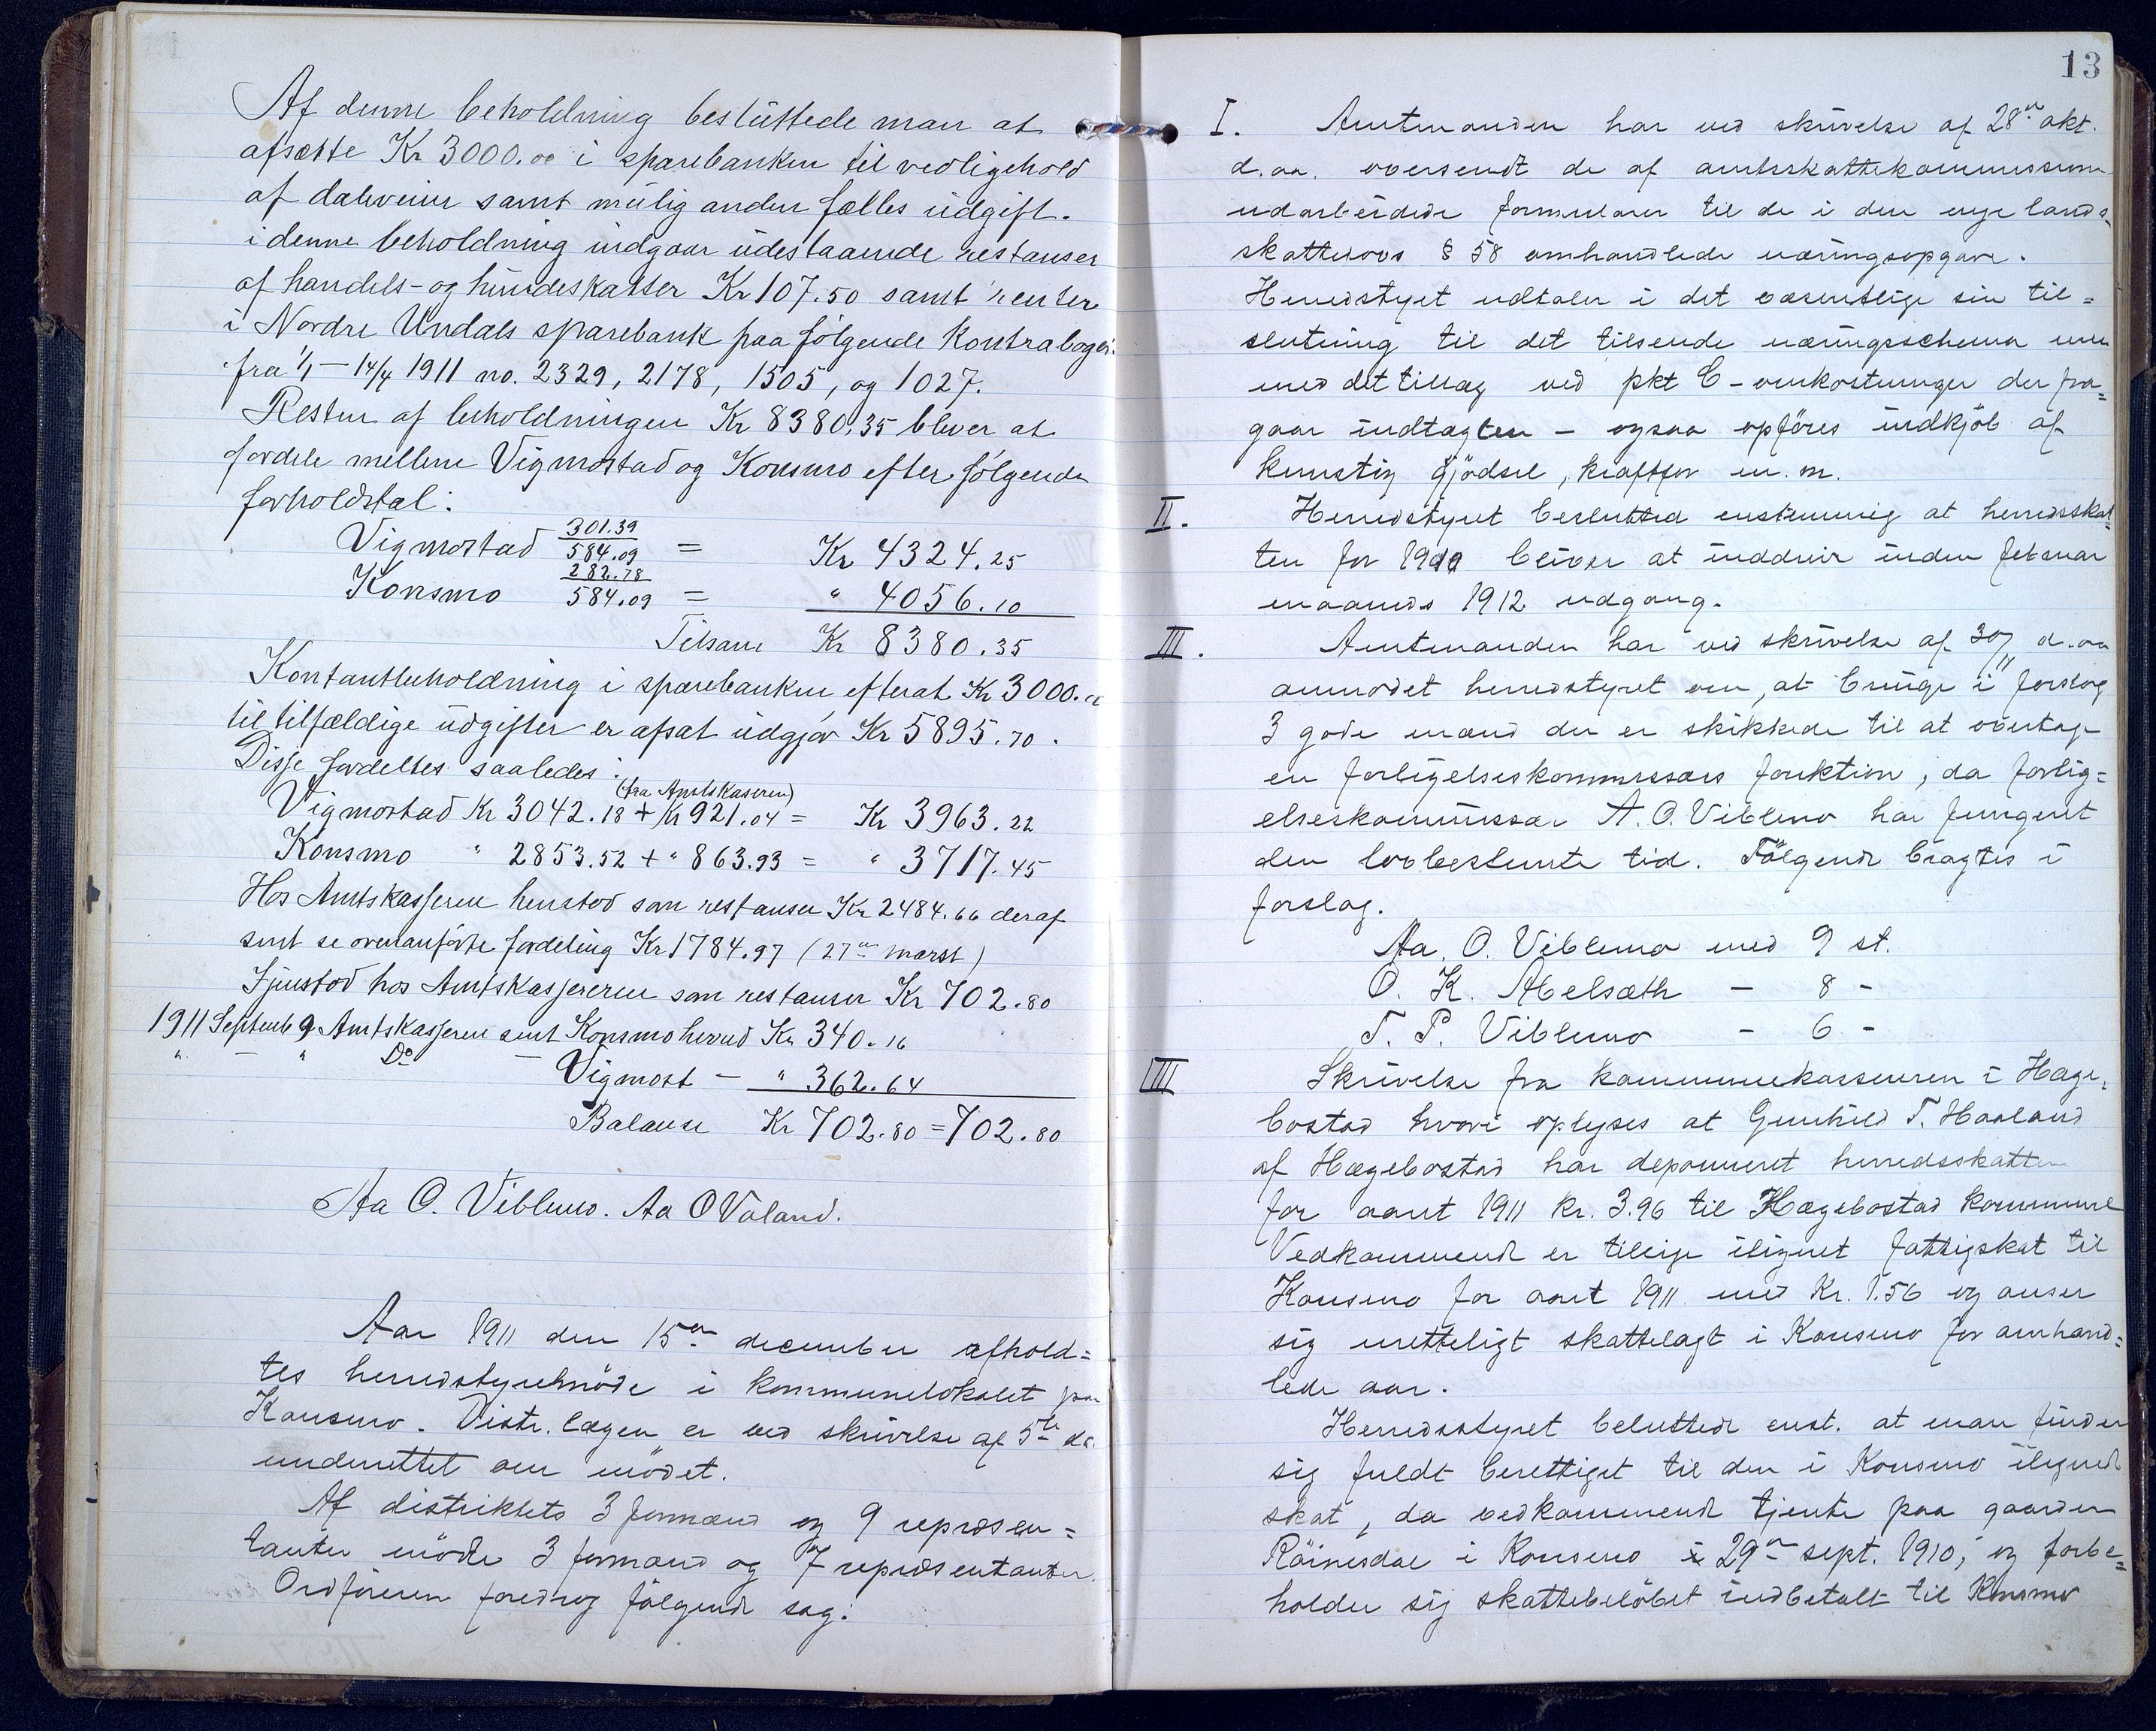 Af denne beholdning besluttede man at
afsætte Kr 3000.00 i sparebanken til vedligehold
af dalveien samt mulig anden fælles udgift.
i denne beholdning indgaar udestaaende restanser
af handels- og hundeskatter Kr 107.50 samt renter
i Nordre Undals sparebank paa følgende Kontrabøger
fra 1/1 - 14/4 1911 no. 2329, 2178, 1505, og 1027.
Resten af beholdningen Kr 8380.35 bliver at
fordele mellem Vigmostad og Konsmo efter følgende
forholdstal:
Vigmostad 301.39/584.09 = Kr 4324.25
Konsmo 282.78/584.09 = " 4056.10
Tilsam Kr 8380.35
Kontantbeholdning i sparebanken efterat Kr 3000.00
til tilfældige udgifter er afsat udgjør Kr 5895.70.
Disse fordeltes saaledes:
(fra Amtskaseren)
Vigmostad Kr 3042.18 + Kr 921.04 = Kr 3963.22
Konsmo " 2853.52 + " 863.93 = " 3717.45
Hos Amtskasseren henstod som restanser Kr 2484.66 deraf
sent se ovenanførte fordeling Kr 1784.97 (27de marst)
Igjenstod hos Amtskassereren som restanser Kr 702.80
1911 Septemb 9 Amtskasseren sent Konsmo herred Kr 340.16
" — " Do — Vigmost — " 362.64
Balanse Kr 702.80 = 702.80
Aa O. Viblemo. Aa O Valand.
Aar 1911 den 15de december afhold=
tes herredstyremöde i kommunelokalet paa
Konsmo. Distr. lægen er ved skrivelse af 5te ds.
underrettet om mödet.
Af distriktets 3 formænd og 9 repræsen=
tanter mödte 3 formænd og 7 repræsentanter.
Ordföreren foredrog fölgende sag:
13
I. Amtmanden har ved skrivelse af 28de okt.
d.aa. oversendt de af amtsskattekommissionen
udarbeidede formularer til de i den nye lands
skattelovs § 58 omhandlede næringsopgave.
Herredstyret udtaler i det væsentlige sin til=
slutning til det tilsendte næringsschema men
med det tillæg ved pkt C - omkostninger der fra=
gaar indtægten - ogsaa opföres indkjöb af
kunstig gjödsel, kraftfor m. m.
II. Herredstyret beslutted enstemmig at herredsskat=
ten for 1910 bliver at inddrive inden februar
maaneds 1912 udgang.
III. Amtmanden har ved skrivelse af 30/11 d.aa
anmodet herredstyret om, at bringe i forslag
3 gode mænd der er skikkede til at overtage
en forligelseskommissærs funktion, da forlig=
elseskommissær A. O. Viblemo har fungeret
den lovbestemte tid. Fölgende bragtes i
forslag.
Aa. O. Viblemo med 9 st.
O. K. Abelsæth - 8 -
T. P. Viblemo - 6 -
IIII Skrivelse fra kommunekasseren i Hæge=
bostad hvori oplyses at Gunhild T. Haaland
af Hægebostad har deponeret herredsskatten
for aaret 1911 kr. 3.96 til Hægebostad kommune
Vedkommende er tillige ilignet fattigskat til
Konsmo for aaret 1911 med Kr. 1.56 og anser
sig uretteligt skattelagt i Konsmo for omhand=
lede aar.
Herredsstyret beluttede enst. at man finder
sig fuldt berettiget til den i Konsmo ilignede
skat, da vedkommende tjente paa gaarden
Röinesdal i Konsmo 29de sept. 1910, og forbe=
holder sig skattebelöbet indbetalt til Konsmo